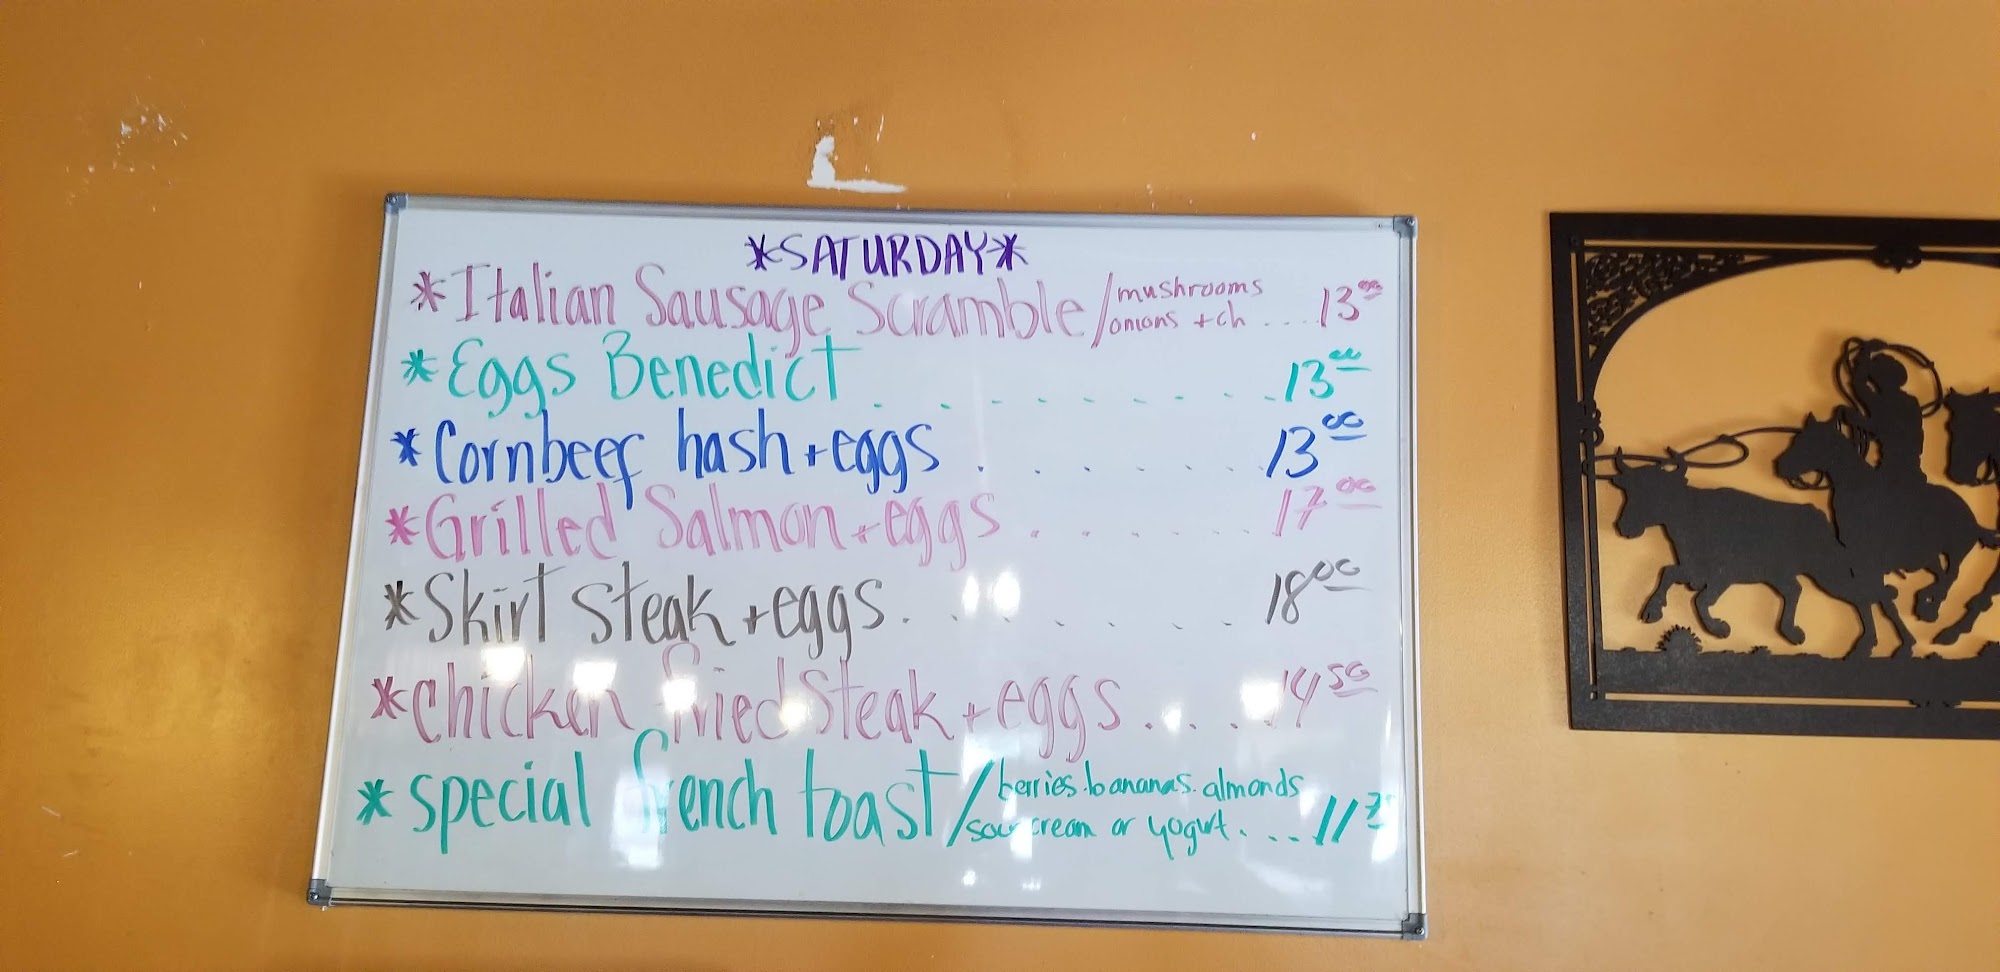 *SATURDAY*
*Italian Sausage Scramble/mushrooms onions +ch ....13 00
*Eggs Benedict . . . . . . . . . 13 00
*Cornbeef hash + eggs . . . . . . 13 00
*Grilled Salmon + eggs . . . . . . 17 00
*Skirt Steak + eggs . . . . . . . 18 00
*chicken fried Steak + eggs . . . . . 14 50
*special french toast/berries.bananas.almonds
sour cream or yogurt. ... 11